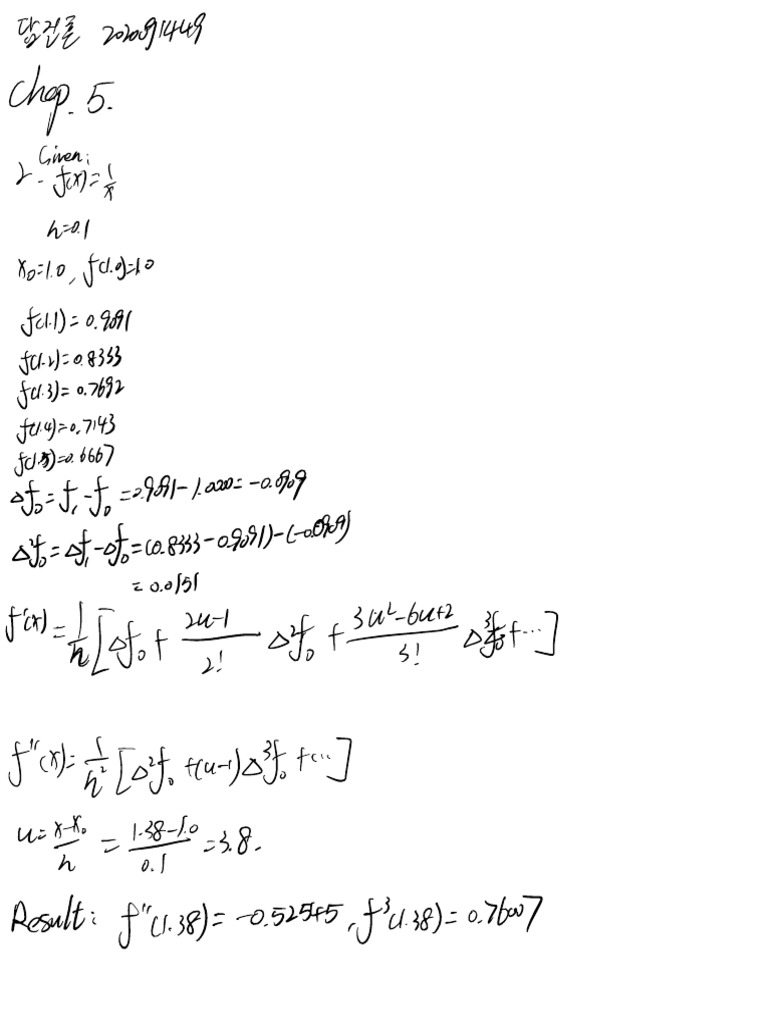 담전론 2020091449
Chap. 5.
Given:
2. f(x)=1/x
h=0.1
x₀=1.0, f(1.0)=1.0
f(1.1)=0.9091
f(1.2)=0.8333
f(1.3)=0.7692
f(1.4)=0.7143
f(1.5)=0.6667
Δf₀=f₁-f₀=0.9091-1.000=-0.0909
Δ²f₀=Δf₁-Δf₀=(0.8333-0.9091)-(-0.0909)
=0.0151
f'(x)=1/h[Δf₀+(2u-1)/2! Δ²f₀+(3u²-6u+2)/3! Δ³f₀+⋯]
f''(x)=1/h²[Δ²f₀+(u-1)Δ³f₀+⋯]
u=(x-x₀)/h=(1.38-1.0)/0.1=3.8.
Result: f''(1.38)=-0.52545, f³(1.38)=0.7607